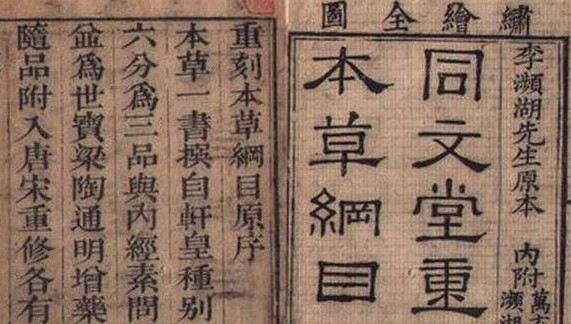 繡繪全圖
李瀕湖先生原本 內附 萬
瀕湖
同文堂重
本草綱目
重刻本草綱目原序
本草一書撰自軒皇種別
六分爲三品與內經素問
並爲世寶梁陶通明增藥
隨品附入唐宋重修各有